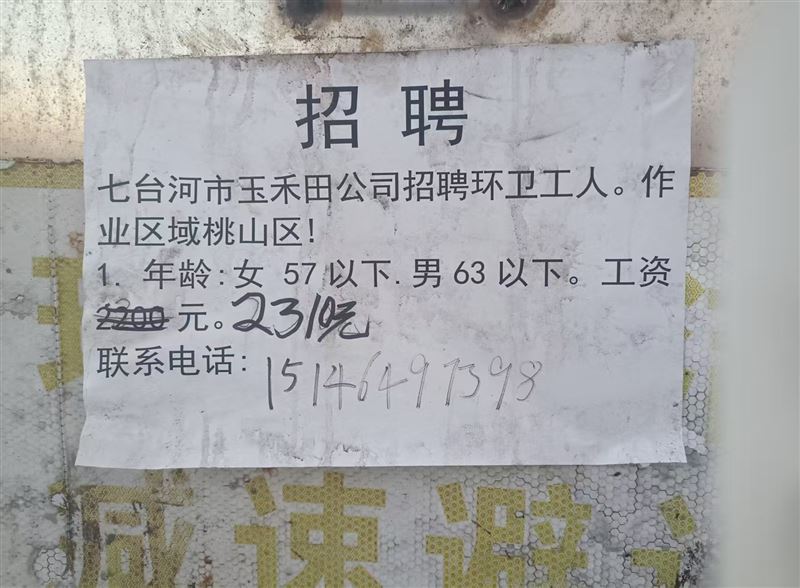 招聘
七台河市玉禾田公司招聘环卫工人。作
业区域桃山区!
1. 年龄:女 57以下.男63以下。工资
2200元。2310元
联系电话: 15146497398
减速避